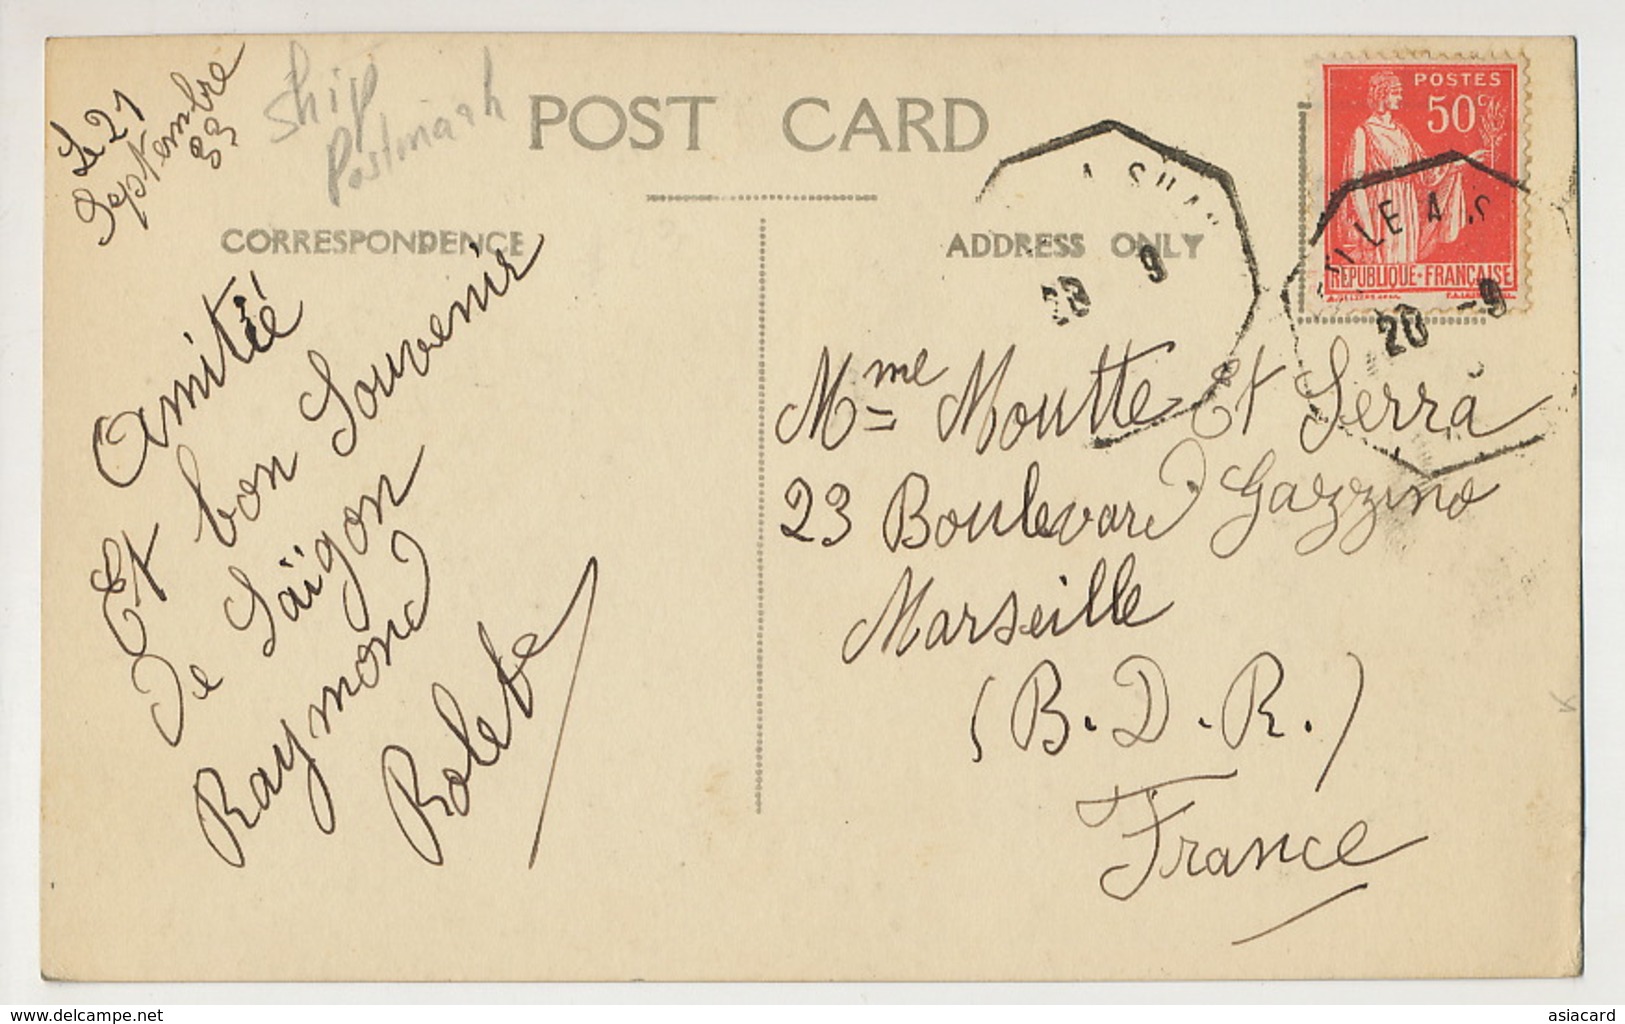 Le 21
Septembre
33
Ship
Postmark
POST CARD
CORRESPONDENCE
ADDRESS ONLY
POSTES
50c
REPUBLIQUE·FRANCAISE
A SHAN
20 9
ILLE A S
20 -9
Amitié
Et bon Souvenir
de Saïgon
Raymond
Rolete
Mme Moutte Et Serra
23 Boulevard Gazzino
Marseille
(B.D.R.)
France
www.delcampe.net
asiacard